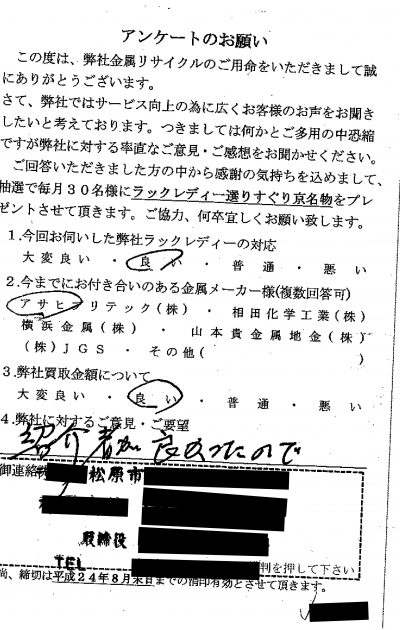 アンケートのお願い
この度は、弊社金属リサイクルのご用命をいただきまして誠
にありがとうございます。
さて、弊社ではサービス向上の為に広くお客様のお声をお聞き
したいと考えております。つきましては何かとご多用の中恐縮
ですが弊社に対する率直なご意見・ご感想をお聞かせください。
ご回答いただきました方の中から感謝の気持ちを込めまして、
抽選で毎月30名様にラックレディー選りすぐり京名物をプレ
ゼントさせて頂きます。ご協力、何卒宜しくお願い致します。
1.今回お伺いした弊社ラックレディーの対応
大変良い ・ 良い ・ 普通 ・ 悪い
2.今までにお付き合いのある金属メーカー様(複数回答可)
アサヒプリテック(株) ・ 相田化学工業(株)
横浜金属(株) ・ 山本貴金属地金(株)
(株)JGS ・ その他( )
3.弊社買取金額について
大変良い ・ 良い ・ 普通 ・ 悪い
4.弊社に対するご意見・ご要望
紹介者が良かったので
御連絡
松原市
取締役
TEL
判を押して下さい
尚、締切は平成24年8月末日までの消印有効とさせて頂きます。